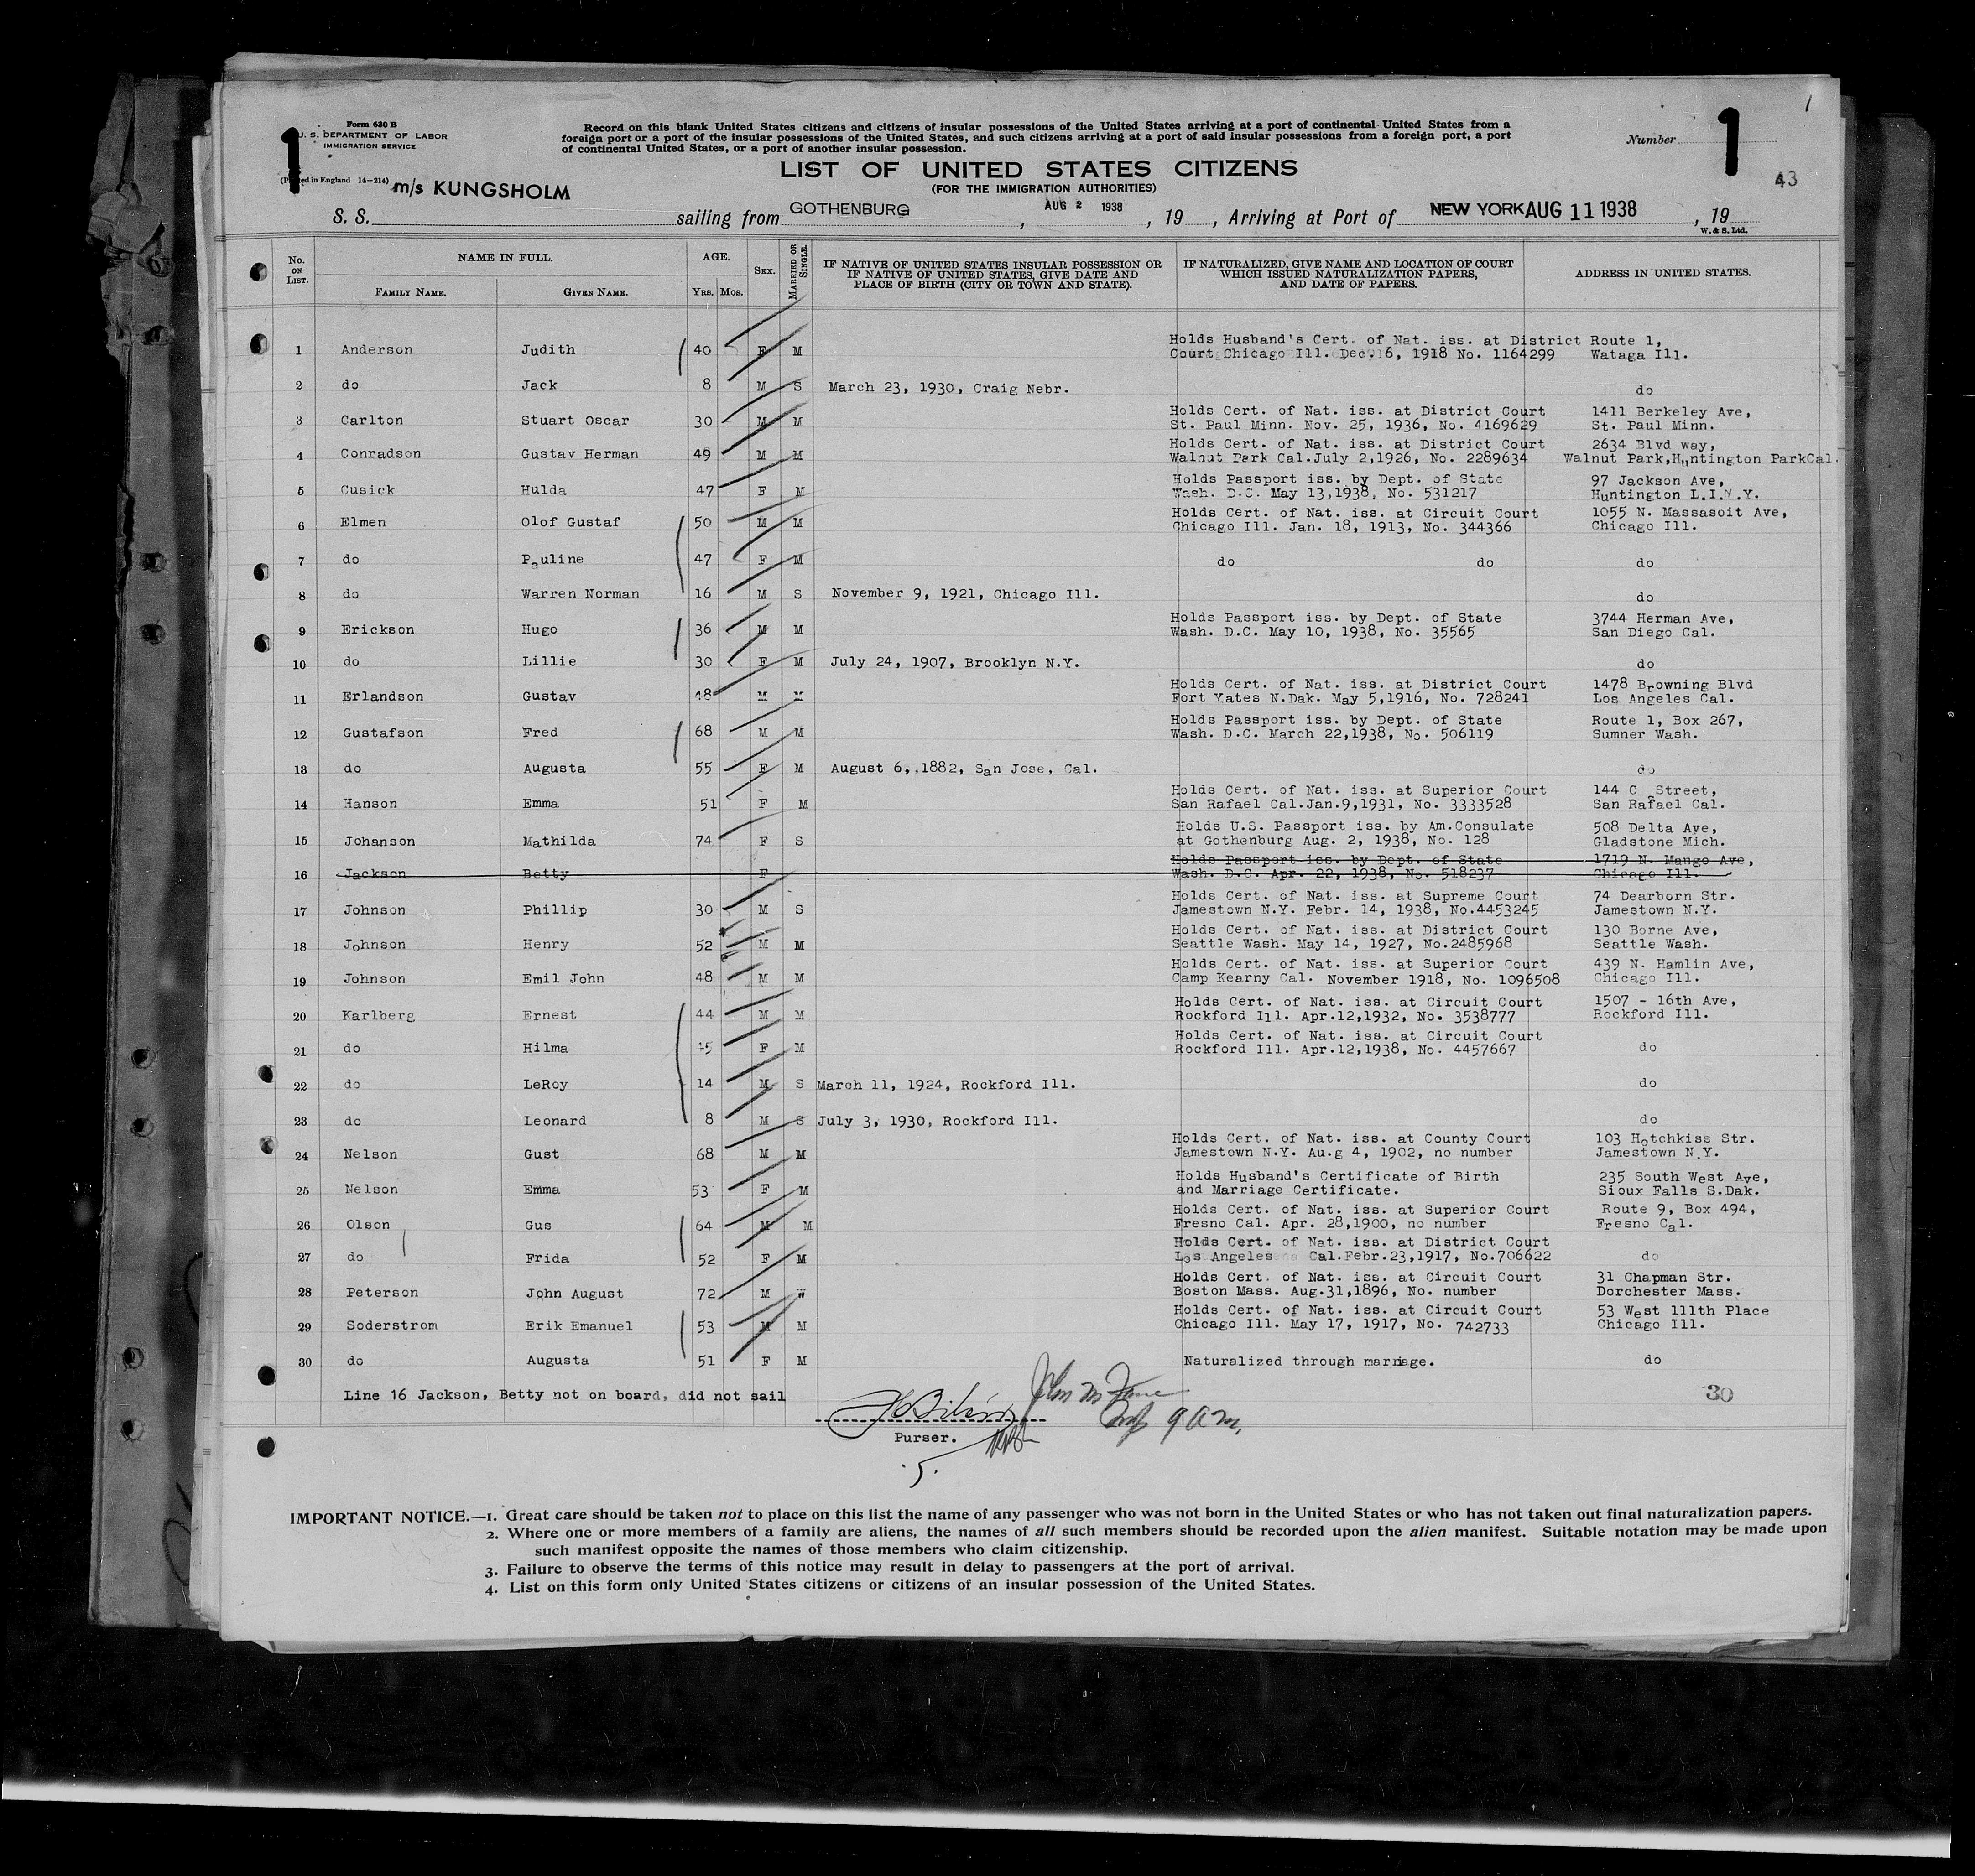 1
Form 630 B
U. S. DEPARTMENT OF LABOR
IMMIGRATION SERVICE
1
Record on this blank United States citizens and citizens of insular possessions of the United States arriving at a port of continental United States from a
foreign port or a port of the insular possessions of the United States, and such citizens arriving at a port of said insular possessions from a foreign port, a port
of continental United States, or a port of another insular possession.
Number
1
43
LIST OF UNITED STATES CITIZENS
(FOR THE IMMIGRATION AUTHORITIES)
in England 14-214)
m/s KUNGSHOLM
S. S. sailing from GOTHENBURG, AUG 2 1938, 19 , Arriving at Port of NEW YORK AUG 11 1938, 19
W. & S. Ltd.
No. ON LIST. NAME IN FULL. FAMILY NAME. GIVEN NAME. AGE. YRS. MOS. SEX. MARRIED OR SINGLE. IF NATIVE OF UNITED STATES INSULAR POSSESSION OR IF NATIVE OF UNITED STATES, GIVE DATE AND PLACE OF BIRTH (CITY OR TOWN AND STATE). IF NATURALIZED, GIVE NAME AND LOCATION OF COURT WHICH ISSUED NATURALIZATION PAPERS, AND DATE OF PAPERS. ADDRESS IN UNITED STATES.
Holds Husband's Cert. of Nat. iss. at District Route 1,
1 Anderson Judith 40 F M Court Chicago Ill. Dec. 6, 1918 No. 1164299 Wataga Ill.
2 do Jack 8 M S March 23, 1930, Craig Nebr. do
Holds Cert. of Nat. iss. at District Court 1411 Berkeley Ave,
3 Carlton Stuart Oscar 30 M M St. Paul Minn. Nov. 25, 1936, No. 4169629 St. Paul Minn.
Holds Cert. of Nat. iss. at District Court 2634 Blvd way,
4 Conradson Gustav Herman 49 M M Walnut Park Cal. July 2,1926, No. 2289634 Walnut Park,Huntington ParkCal.
Holds Passport iss. by Dept. of State 97 Jackson Ave,
5 Cusick Hulda 47 F M Wash. D.C. May 13,1938, No. 531217 Huntington L.I.N.Y.
Holds Cert. of Nat. iss. at Circuit Court 1055 N. Massasoit Ave,
6 Elmen Olof Gustaf 50 M M Chicago Ill. Jan. 18, 1913, No. 344366 Chicago Ill.
7 do Pauline 47 F M do do do
8 do Warren Norman 16 M S November 9, 1921, Chicago Ill. do
Holds Passport iss. by Dept. of State 3744 Herman Ave,
9 Erickson Hugo 36 M M Wash. D.C. May 10, 1938, No. 35565 San Diego Cal.
10 do Lillie 30 F M July 24, 1907, Brooklyn N.Y. do
Holds Cert. of Nat. iss. at District Court 1478 Browning Blvd
11 Erlandson Gustav 48 M M Fort Yates N.Dak. May 5,1916, No. 728241 Los Angeles Cal.
Holds Passport iss. by Dept. of State Route 1, Box 267,
12 Gustafson Fred 68 M M Wash. D.C. March 22,1938, No. 506119 Sumner Wash.
13 do Augusta 55 F M August 6, 1882, San Jose, Cal. do
Holds Cert. of Nat. iss. at Superior Court 144 C Street,
14 Hanson Emma 51 F M San Rafael Cal.Jan.9,1931, No. 3333528 San Rafael Cal.
Holds U.S. Passport iss. by Am.Consulate 508 Delta Ave,
15 Johanson Mathilda 74 F S at Gothenburg Aug. 2, 1938, No. 128 Gladstone Mich.
Holds Passport iss. by Dept. of State 1719 N. Mango Ave,
16 Jackson Betty F Wash. D.C. Apr. 22, 1938, No. 518237 Chicago Ill.
Holds Cert. of Nat. iss. at Supreme Court 74 Dearborn Str.
17 Johnson Phillip 30 M S Jamestown N.Y. Febr. 14, 1938, No.4453245 Jamestown N.Y.
Holds Cert. of Nat. iss. at District Court 130 Borne Ave,
18 Johnson Henry 52 M M Seattle Wash. May 14, 1927, No.2485968 Seattle Wash.
Holds Cert. of Nat. iss. at Superior Court 439 N. Hamlin Ave,
19 Johnson Emil John 48 M M Camp Kearny Cal. November 1918, No. 1096508 Chicago Ill.
Holds Cert. of Nat. iss. at Circuit Court 1507 - 16th Ave,
20 Karlberg Ernest 44 M M Rockford Ill. Apr.12,1932, No. 3538777 Rockford Ill.
Holds Cert. of Nat. iss. at Circuit Court
21 do Hilma 45 F M Rockford Ill. Apr.12,1938, No. 4457667 do
22 do LeRoy 14 M S March 11, 1924, Rockford Ill. do
23 do Leonard 8 M S July 3, 1930, Rockford Ill. do
Holds Cert. of Nat. iss. at County Court 103 Hotchkiss Str.
24 Nelson Gust 68 M M Jamestown N.Y. Au.g 4, 1902, no number Jamestown N.Y.
Holds Husband's Certificate of Birth 235 South West Ave,
25 Nelson Emma 53 F M and Marriage Certificate. Sioux Falls S.Dak.
Holds Cert. of Nat. iss. at Superior Court Route 9, Box 494,
26 Olson Gus 64 M M Fresno Cal. Apr. 28,1900, no number Fresno Cal.
Holds Cert. of Nat. iss. at District Court
27 do Frida 52 F M Los Angeles Cal.Febr.23,1917, No.706622 do
Holds Cert. of Nat. iss. at Circuit Court 31 Chapman Str.
28 Peterson John August 72 M W Boston Mass. Aug.31,1896, No. number Dorchester Mass.
Holds Cert. of Nat. iss. at Circuit Court 53 West 111th Place
29 Soderstrom Erik Emanuel 53 M M Chicago Ill. May 17, 1917, No. 742733 Chicago Ill.
30 do Augusta 51 F M Naturalized through marriage. do
Line 16 Jackson, Betty not on board, did not sail
30
John M
9 am.
Purser.
5.
IMPORTANT NOTICE.—1. Great care should be taken not to place on this list the name of any passenger who was not born in the United States or who has not taken out final naturalization papers.
2. Where one or more members of a family are aliens, the names of all such members should be recorded upon the alien manifest. Suitable notation may be made upon
such manifest opposite the names of those members who claim citizenship.
3. Failure to observe the terms of this notice may result in delay to passengers at the port of arrival.
4. List on this form only United States citizens or citizens of an insular possession of the United States.